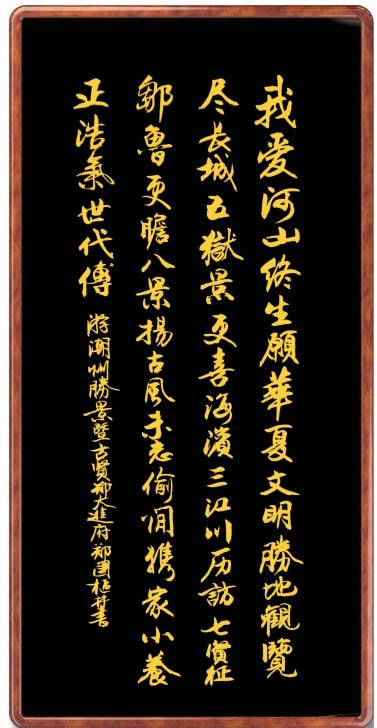 我愛河山終生願華夏文明勝地觀覽
尽長城五獄景更喜海濱三江川历訪七賢征
鄒魯更瞻八景揚古風未忘偷閒携家小養
正浩氣世代傳
游潮州勝景暨古賢鄭大進府鄭國書